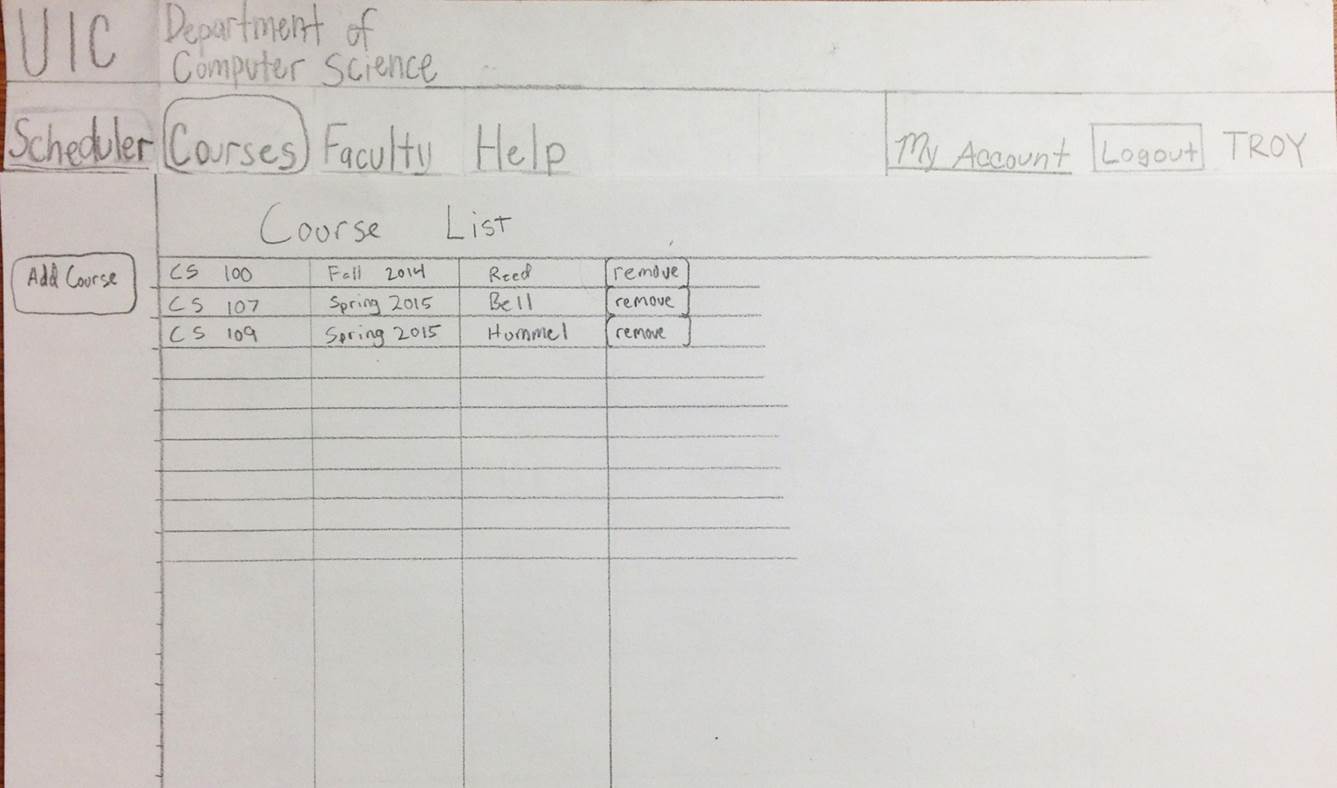 UIC Department of
Computer Science
Scheduler Courses Faculty Help My Account Logout TROY
Course List
Add Course
CS 100 Fall 2014 Reed remove
CS 107 Spring 2015 Bell remove
CS 109 Spring 2015 Hummel remove